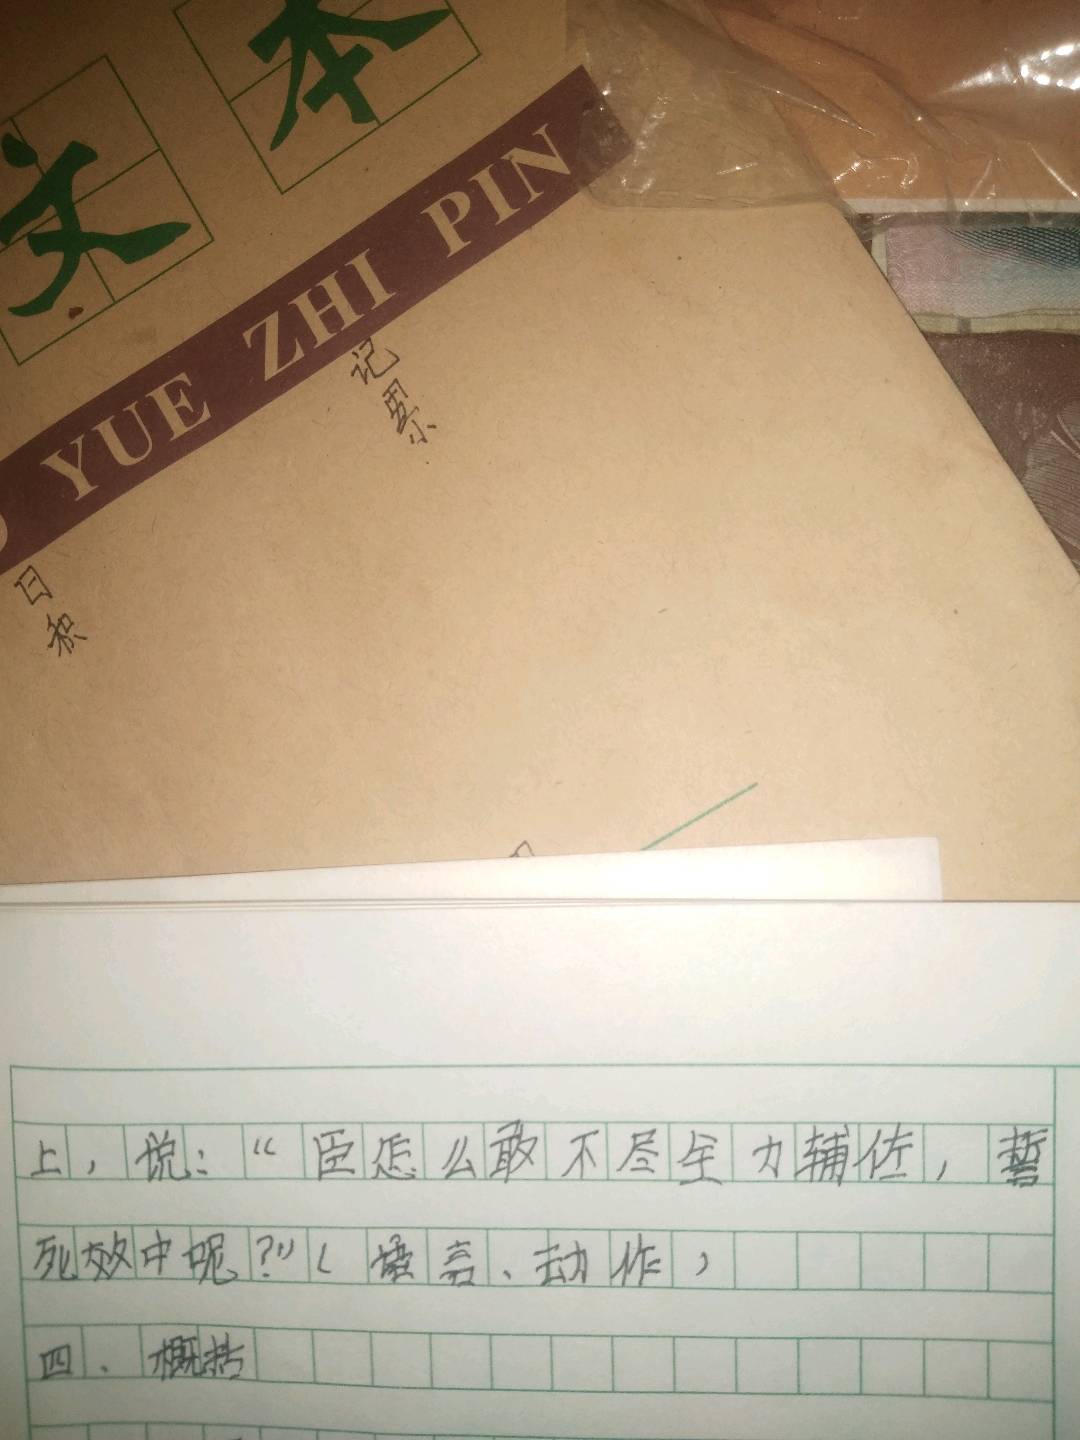 文本
YUE ZHI PIN
记累
日积
上，说：“臣怎么敢不尽全力辅佐，誓
死效中呢？”（语言、动作）
四、概括